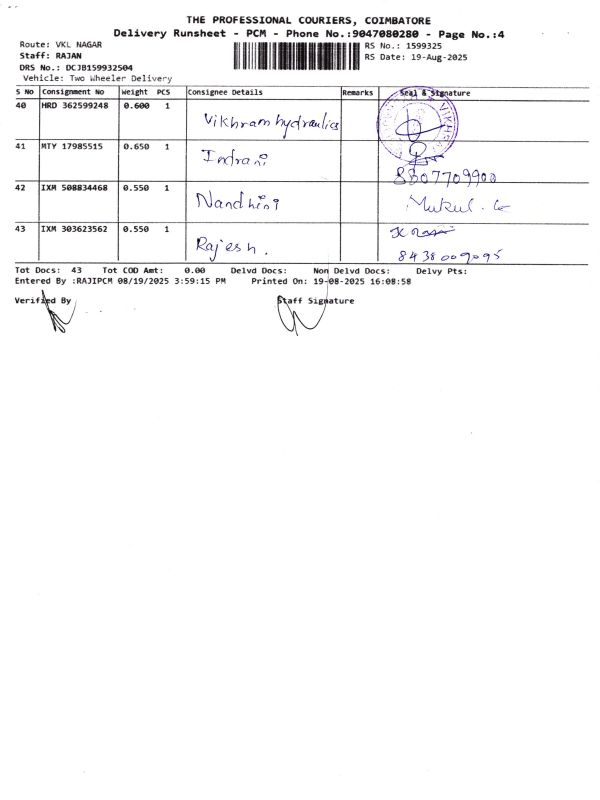 THE PROFESSIONAL COURIERS, COIMBATORE
Delivery Runsheet - PCM - Phone No.:9047080280 - Page No.:4
Route: VKL NAGAR
RS No.: 1599325
Staff: RAJAN
RS Date: 19-Aug-2025
DRS No.: DCJB159932504
Vehicle: Two Wheeler Delivery
S No Consignment No Weight PCS Consignee Details Remarks Seal & Signature
40 HRD 362599248 0.600 1 Vikhram hydraulics
41 MTY 17985515 0.650 1 Indrani
8807709900
42 IXM 508834468 0.550 1 Nandhini Mukul. G
43 IXM 303623562 0.550 1 Rajesh.
8438009095
Tot Docs: 43 Tot COD Amt: 0.00 Delvd Docs: Non Delvd Docs: Delvy Pts:
Entered By :RAJIPCM 08/19/2025 3:59:15 PM Printed On: 19-08-2025 16:08:58
Verified By Staff Signature